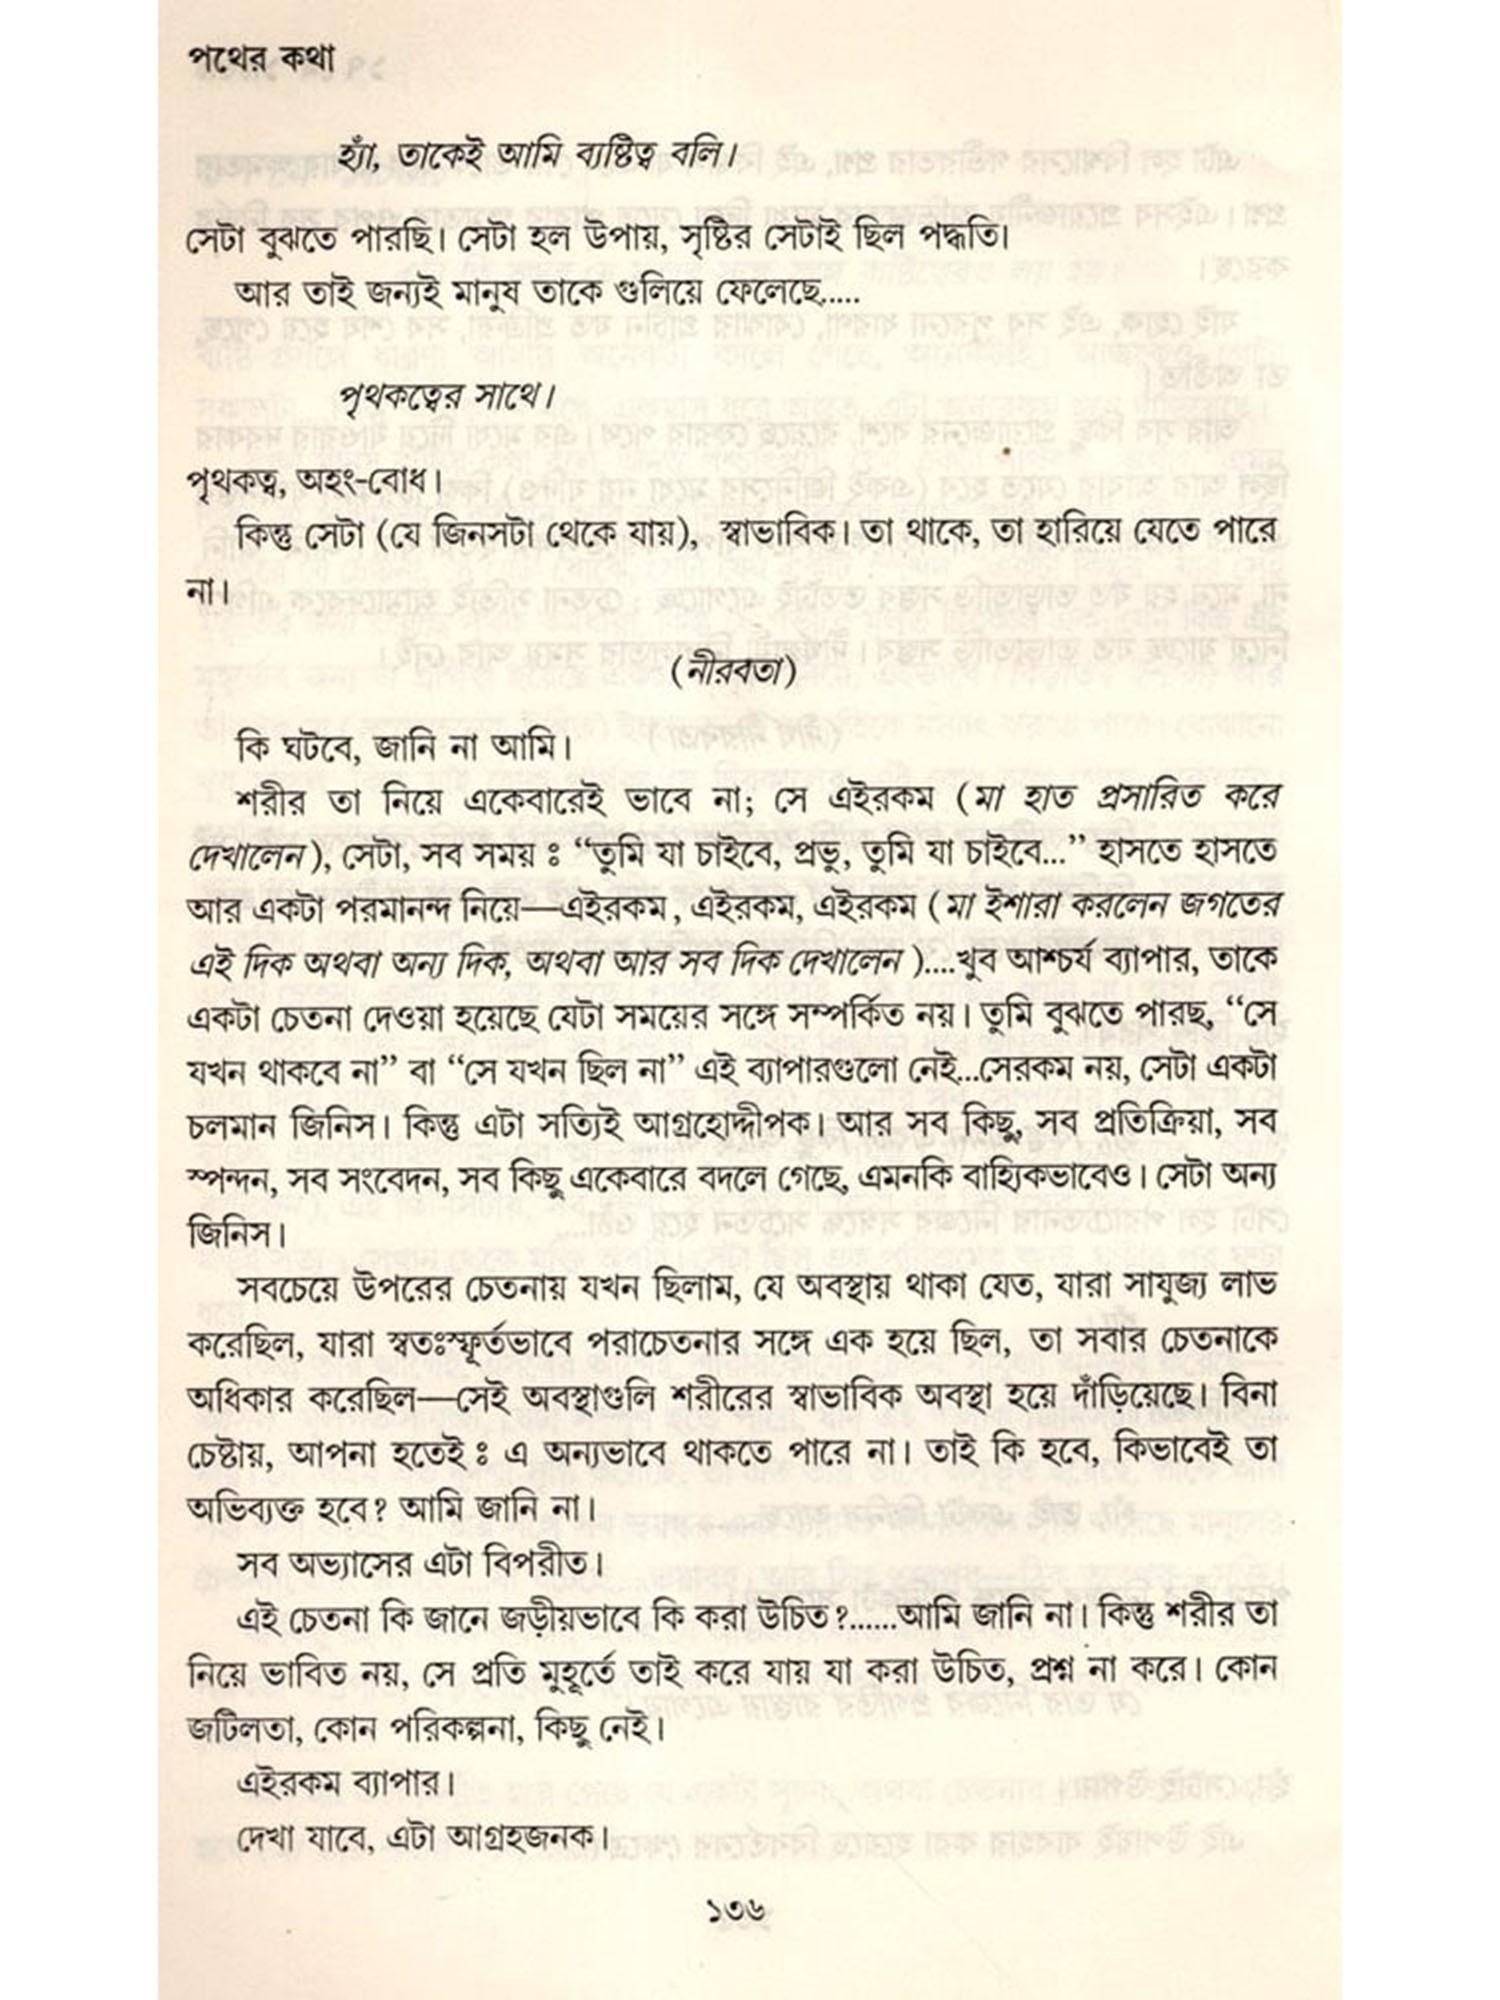 পথের কথা
হ্যাঁ, তাকেই আমি ব্যষ্টিত্ব বলি।
সেটা বুঝতে পারছি। সেটা হল উপায়, সৃষ্টির সেটাই ছিল পদ্ধতি।
আর তাই জন্যই মানুষ তাকে গুলিয়ে ফেলেছে.....
পৃথকত্বের সাথে।
পৃথকত্ব, অহং-বোধ।
কিন্তু সেটা (যে জিনসটা থেকে যায়), স্বাভাবিক। তা থাকে, তা হারিয়ে যেতে পারে
না।
(নীরবতা)
কি ঘটবে, জানি না আমি।
শরীর তা নিয়ে একেবারেই ভাবে না; সে এইরকম (মা হাত প্রসারিত করে
দেখালেন), সেটা, সব সময় ঃ “তুমি যা চাইবে, প্রভু, তুমি যা চাইবে...” হাসতে হাসতে
আর একটা পরমানন্দ নিয়ে—এইরকম, এইরকম, এইরকম (মা ইশারা করলেন জগতের
এই দিক অথবা অন্য দিক, অথবা আর সব দিক দেখালেন)....খুব আশ্চর্য ব্যাপার, তাকে
একটা চেতনা দেওয়া হয়েছে যেটা সময়ের সঙ্গে সম্পর্কিত নয়। তুমি বুঝতে পারছ, “সে
যখন থাকবে না” বা “সে যখন ছিল না” এই ব্যাপারগুলো নেই...সেরকম নয়, সেটা একটা
চলমান জিনিস। কিন্তু এটা সত্যিই আগ্রহোদ্দীপক। আর সব কিছু, সব প্রতিক্রিয়া, সব
স্পন্দন, সব সংবেদন, সব কিছু একেবারে বদলে গেছে, এমনকি বাহ্যিকভাবেও। সেটা অন্য
জিনিস।
সবচেয়ে উপরের চেতনায় যখন ছিলাম, যে অবস্থায় থাকা যেত, যারা সাযুজ্য লাভ
করেছিল, যারা স্বতঃস্ফূর্তভাবে পরাচেতনার সঙ্গে এক হয়ে ছিল, তা সবার চেতনাকে
অধিকার করেছিল—সেই অবস্থাগুলি শরীরের স্বাভাবিক অবস্থা হয়ে দাঁড়িয়েছে। বিনা
চেষ্টায়, আপনা হতেই ঃ এ অন্যভাবে থাকতে পারে না। তাই কি হবে, কিভাবেই তা
অভিব্যক্ত হবে? আমি জানি না।
সব অভ্যাসের এটা বিপরীত।
এই চেতনা কি জানে জড়ীয়ভাবে কি করা উচিত?......আমি জানি না। কিন্তু শরীর তা
নিয়ে ভাবিত নয়, সে প্রতি মুহূর্তে তাই করে যায় যা করা উচিত, প্রশ্ন না করে। কোন
জটিলতা, কোন পরিকল্পনা, কিছু নেই।
এইরকম ব্যাপার।
দেখা যাবে, এটা আগ্রহজনক।
১৩৬